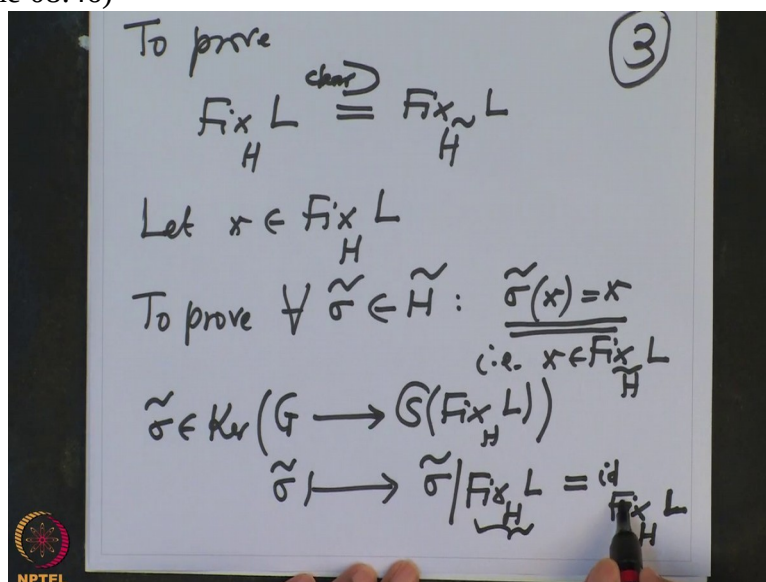 To prove
③
Fix_H L = Fix_H̃ L
Let x ∈ Fix_H L
To prove ∀ σ̃ ∈ H̃ : σ̃(x) = x
i.e. x ∈ Fix_H̃ L
σ̃ ∈ Ker(G ⟶ S(Fix_H L))
σ̃ ⟼ σ̃|Fix_H L = id_Fix_H L
NPTEL